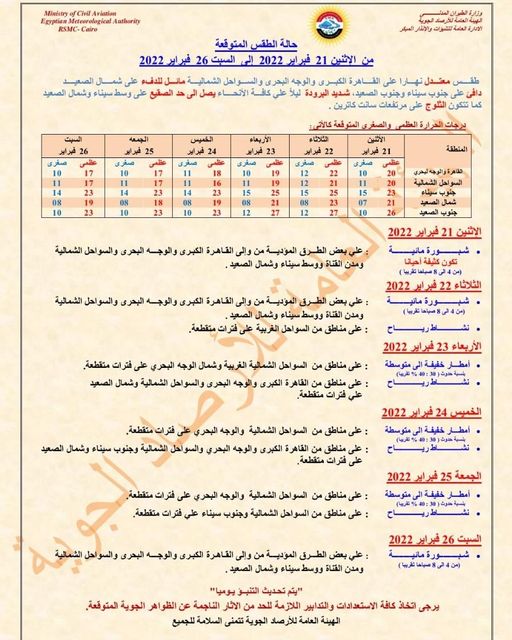 Ministry of Civil Aviation
Egyptian Meteorological Authority
RSMC- Cairo
وزارة الطيران المدنـــي
الهيئة العامة للأرصاد الجوية
الادارة العامة للتنبؤات والانذار المبكر
حالة الطقس المتوقعة
من الاثنين 21 فبراير 2022 إلى السبت 26 فبراير 2022
طقس معتدل نهارا على القاهرة الكبرى والوجه البحرى والسواحل الشمالية مائل للدفء على شمال الصعيد
دافئ على جنوب سيناء وجنوب الصعيد، شديد البرودة ليلاً علي كافة الأنحاء يصل الى حد الصقيع على وسط سيناء وشمال الصعيد
كما تتكون الثلوج على مرتفعات سانت كاترين .
درجات الحرارة العظمى والصغرى المتوقعة كالآتي:
المنطقة الأثنين 21 فبراير الثلاثاء 22 فبراير الأربعاء 23 فبراير الخميس 24 فبراير الجمعه 25 فبراير السبت 26 فبراير
عظمى صغرى عظمى صغرى عظمى صغرى عظمى صغرى عظمى صغرى عظمى صغرى
القاهرة والوجه البحرى 20 10 22 12 19 10 18 11 17 10 17 10
السواحل الشمالية 20 11 21 12 19 11 16 11 17 11 17 11
جنوب سيناء 23 15 25 15 23 14 25 15 23 14 23 14
شمال الصعيد 21 07 23 08 21 10 20 08 19 08 19 08
جنوب الصعيد 26 10 27 12 27 12 23 10 23 10 23 10
الاثنين 21 فبراير 2022
شـبـــورة مائيـــة : علي بعض الطرق المؤدية من وإلى القاهرة الكبرى والوجه البحرى والسواحل الشمالية
تكون كثيفة أحيانا ومدن القناة ووسط سيناء وشمال الصعيد .
(من 4 الى 8 صباحا تقريبا )
الثلاثاء 22 فبراير 2022
شـبـــورة مائيـــة : علي بعض الطرق المؤدية من وإلى القاهرة الكبرى والوجه البحرى والسواحل الشمالية
(من 4 الى 8 صباحا تقريبا ) ومدن القناة ووسط سيناء وشمال الصعيد .
نشـــاط ريـــاح : على مناطق من السواحل الغربية على فترات متقطعة.
الأربعاء 23 فبراير 2022
أمطار خفيفة الى متوسطة : على مناطق من السواحل الشمالية الغربية وشمال الوجه البحري على فترات متقطعة.
بنسبة حدوث ( 30 : 40 % تقريبا)
نشـــاط ريـــاح : على مناطق من القاهرة الكبرى والوجه البحري والسواحل الشمالية وشمال الصعيد
علي فترات متقطعة.
الخميس 24 فبراير 2022
أمطار خفيفة الى متوسطة : على مناطق من السواحل الشمالية والوجه البحري على فترات متقطعة.
بنسبة حدوث ( 30 : 40 % تقريبا)
نشـــاط ريـــاح : على مناطق من القاهرة الكبرى والوجه البحري والسواحل الشمالية وجنوب سيناء وشمال الصعيد
علي فترات متقطعة.
الجمعة 25 فبراير 2022
أمطار خفيفة الى متوسطة : على مناطق من السواحل الشمالية والوجه البحري على فترات متقطعة.
بنسبة حدوث ( 30 : 40 % تقريبا)
نشـــاط ريـــاح : على مناطق من السواحل الشمالية وجنوب سيناء علي فترات متقطعة.
السبت 26 فبراير 2022
شـبـــورة مائيـــة : علي بعض الطرق المؤدية من وإلى القاهرة الكبرى والوجه البحرى والسواحل الشمالية
(من 4 الى 8 صباحا تقريبا ) ومدن القناة ووسط سيناء وشمال الصعيد .
"يتم تحديث التنبؤ يوميا"
يرجى اتخاذ كافة الاستعدادات والتدابير اللازمة للحد من الاثار الناجمة عن الظواهر الجوية المتوقعة.
الهيئة العامة للأرصاد الجوية تتمنى السلامة للجميع
الهيئة العامة للأرصاد الجوية